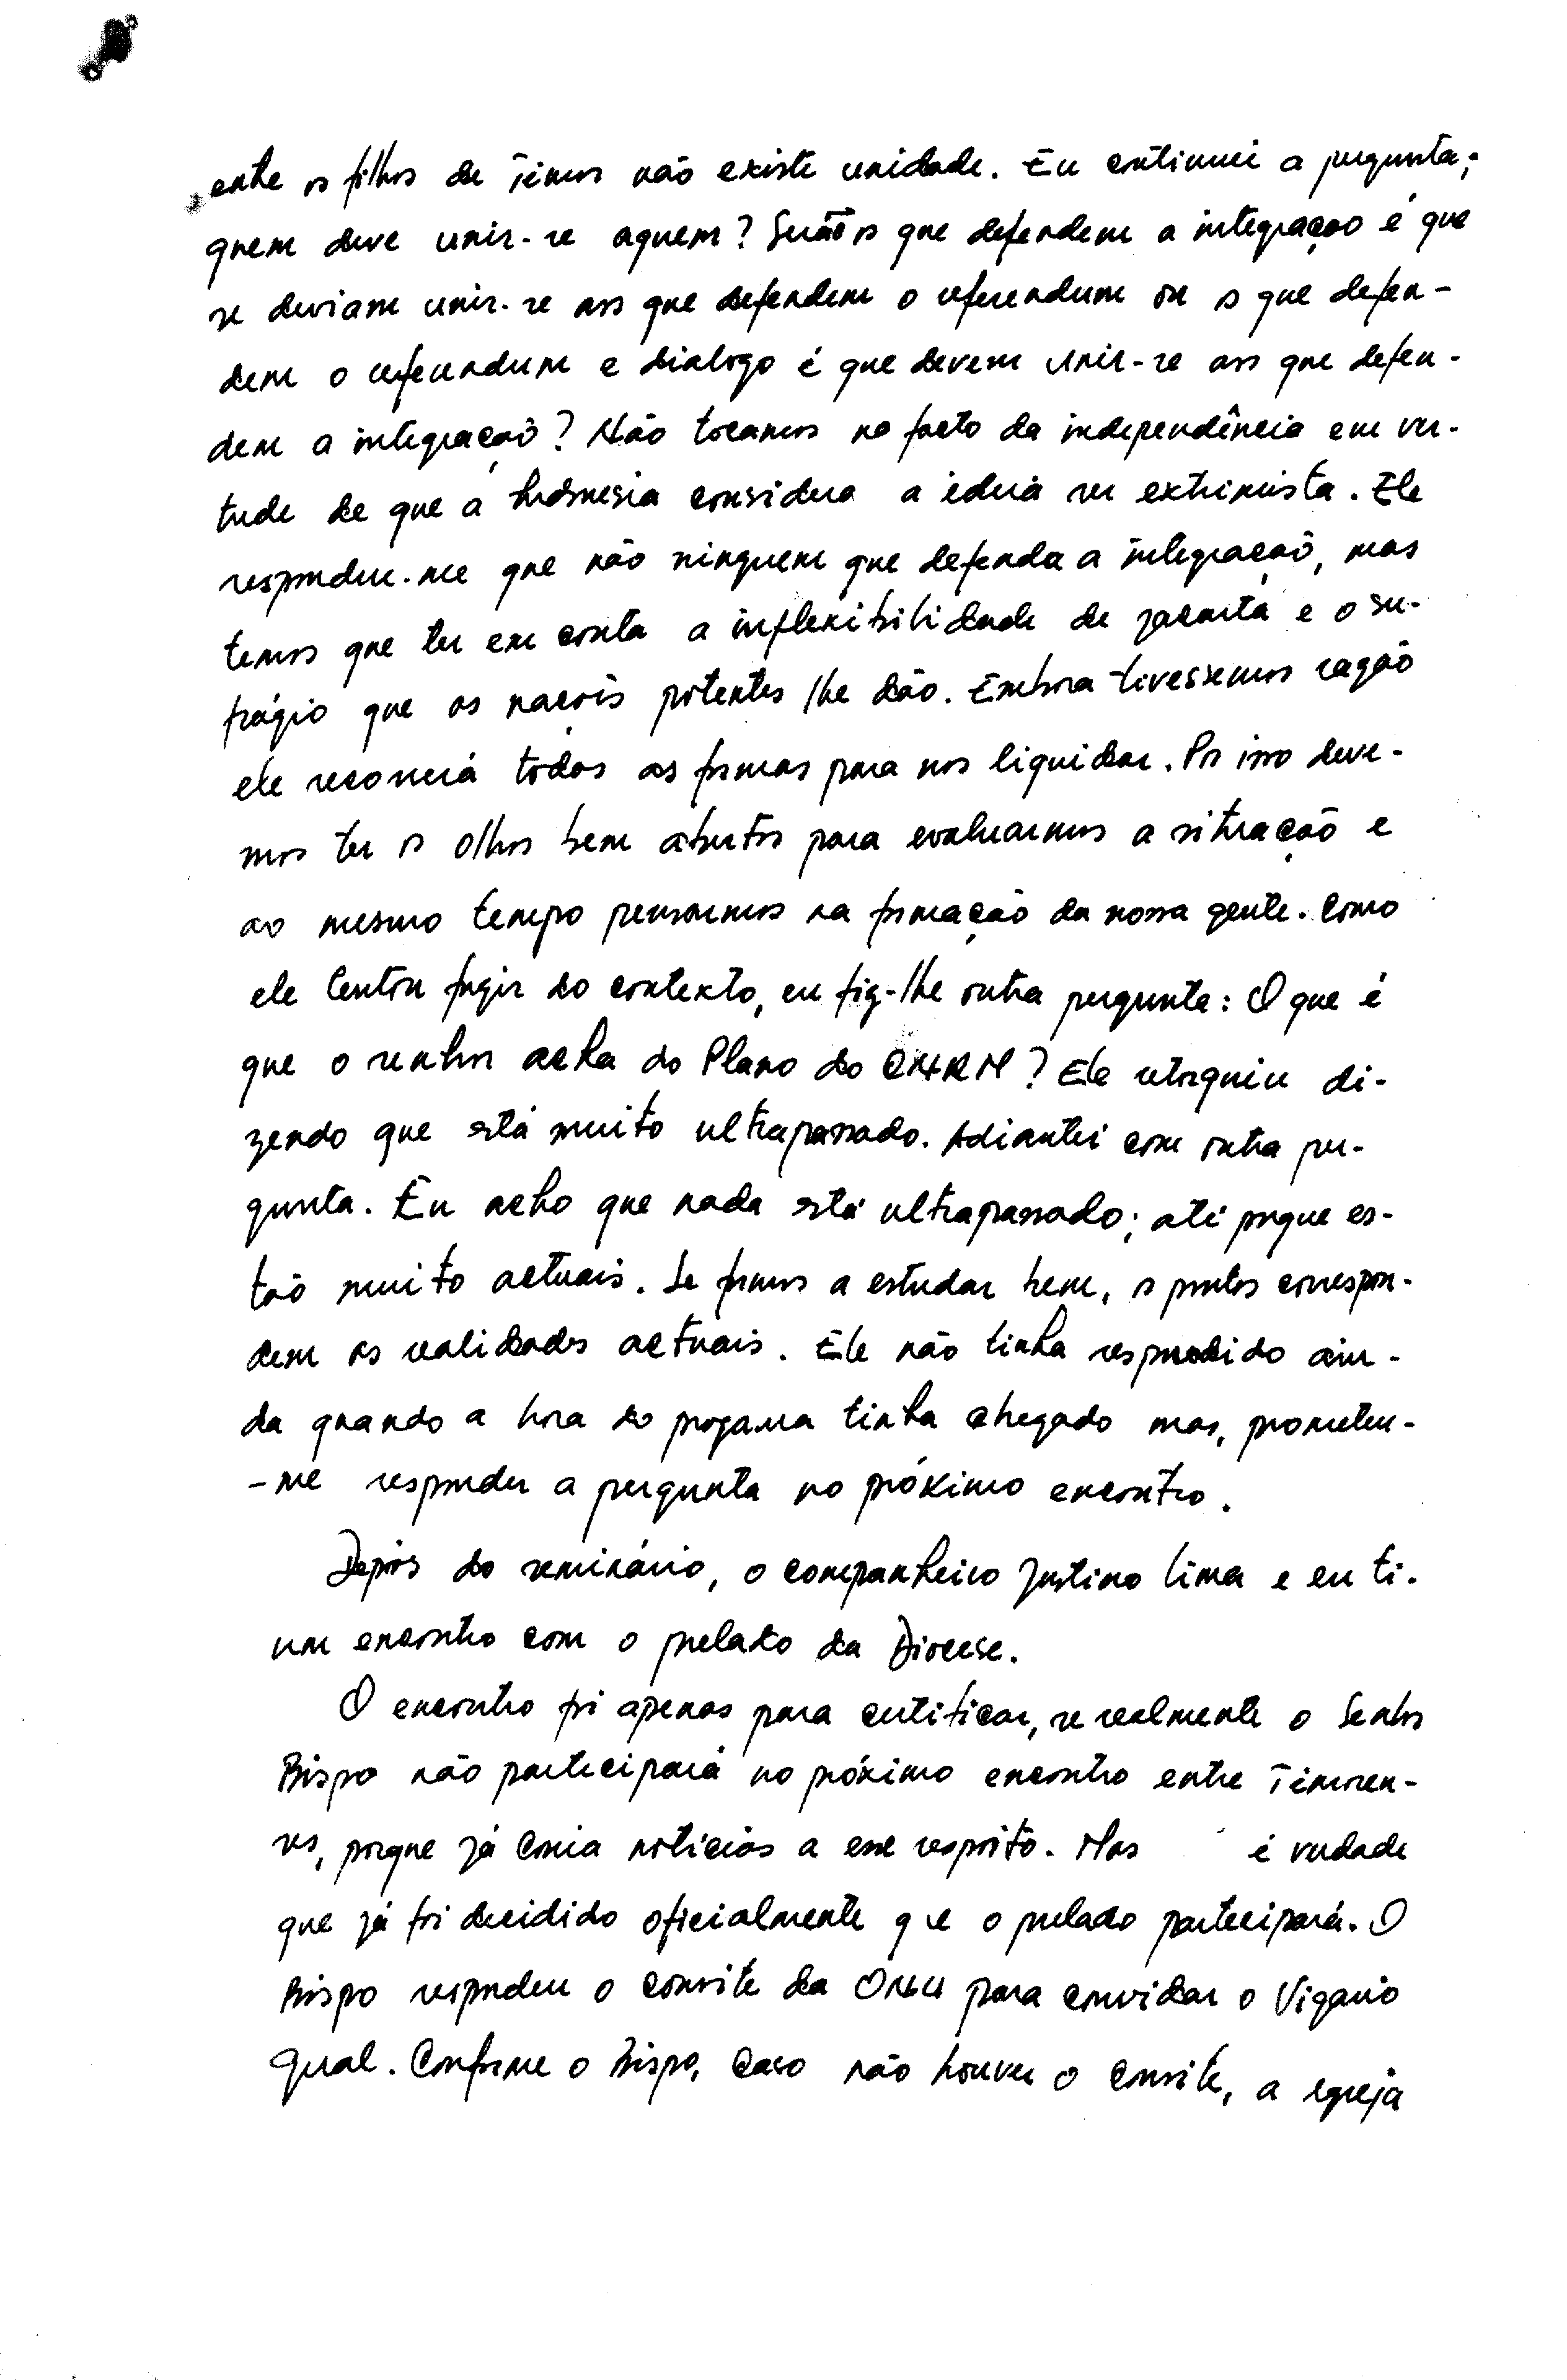 , entre os filhos de Timor não existe unidade. Eu continuei a pergunta;
quem deve unir-se aquem? Serão os que defendem a integração é que
se deviam unir-se aos que defendem o referendum ou os que defen-
dem o referendum e dialogo é que devem unir-se aos que defen-
dem a integração? Não tocamos no facto da independência em vir-
tude de que a Indonesia considera a ideia ser extrimista. Ele
respondeu-me que não ninguem que defenda a integração, mas
temos que ter em conta a inflexibilidade de Jacarta e o su-
frágio que as nações potentes lhe dão. Embora tivessemos razão
ele recorrerá todas as formas para nos liquidar. Por isso deve-
mos ter os olhos bem abertos para evaluarmos a situação e
ao mesmo tempo pensarmos na formação da nossa gente. Como
ele tentou fugir do contexto, eu fiz-lhe outra pergunta: O que é
que o senhor acha do Plano do CNRM? Ele retorquiu di-
zendo que está muito ultrapassado. Adiantei com outra per-
gunta. Eu acho que nada está ultrapassado; até porque es-
tão muito actuais. Se formos a estudar bem, os pontos correspon-
dem as realidades actuais. Ele não tinha respondido ain-
da quando a hora do progama tinha chegado mas, prometeu-
-me responder a pergunta no próximo encontro.
Depois do seminário, o companheiro Justino Lima e eu ti-
um encontro com o prelado da Diocese.
O encontro foi apenas para certificar, se realmente o Senhor
Bispo não participará no próximo encontro entre Timoren-
ses, porque já corria noticias a esse respeito. Mas é verdade
que já foi decidido oficialmente que o prelado participará. O
Bispo respondeu o convite da ONU para convidar o Vigario
Geral. Conforme o Bispo, caso não houver o convite, a egreja